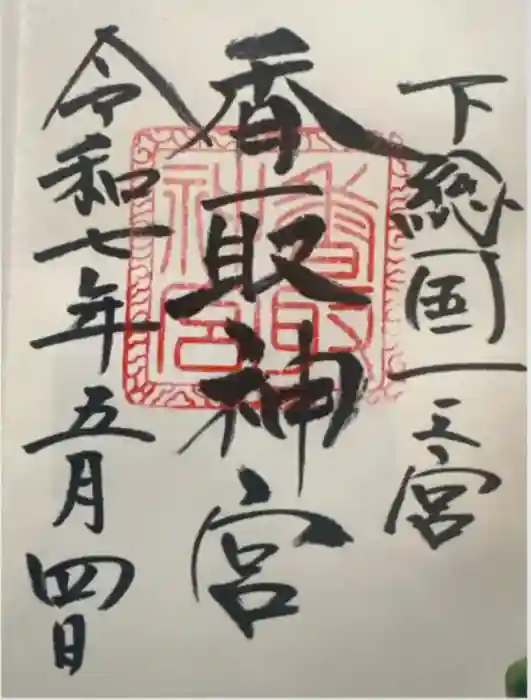 下総國一之宮
香取神宮
令和七年五月四日
香取神宮